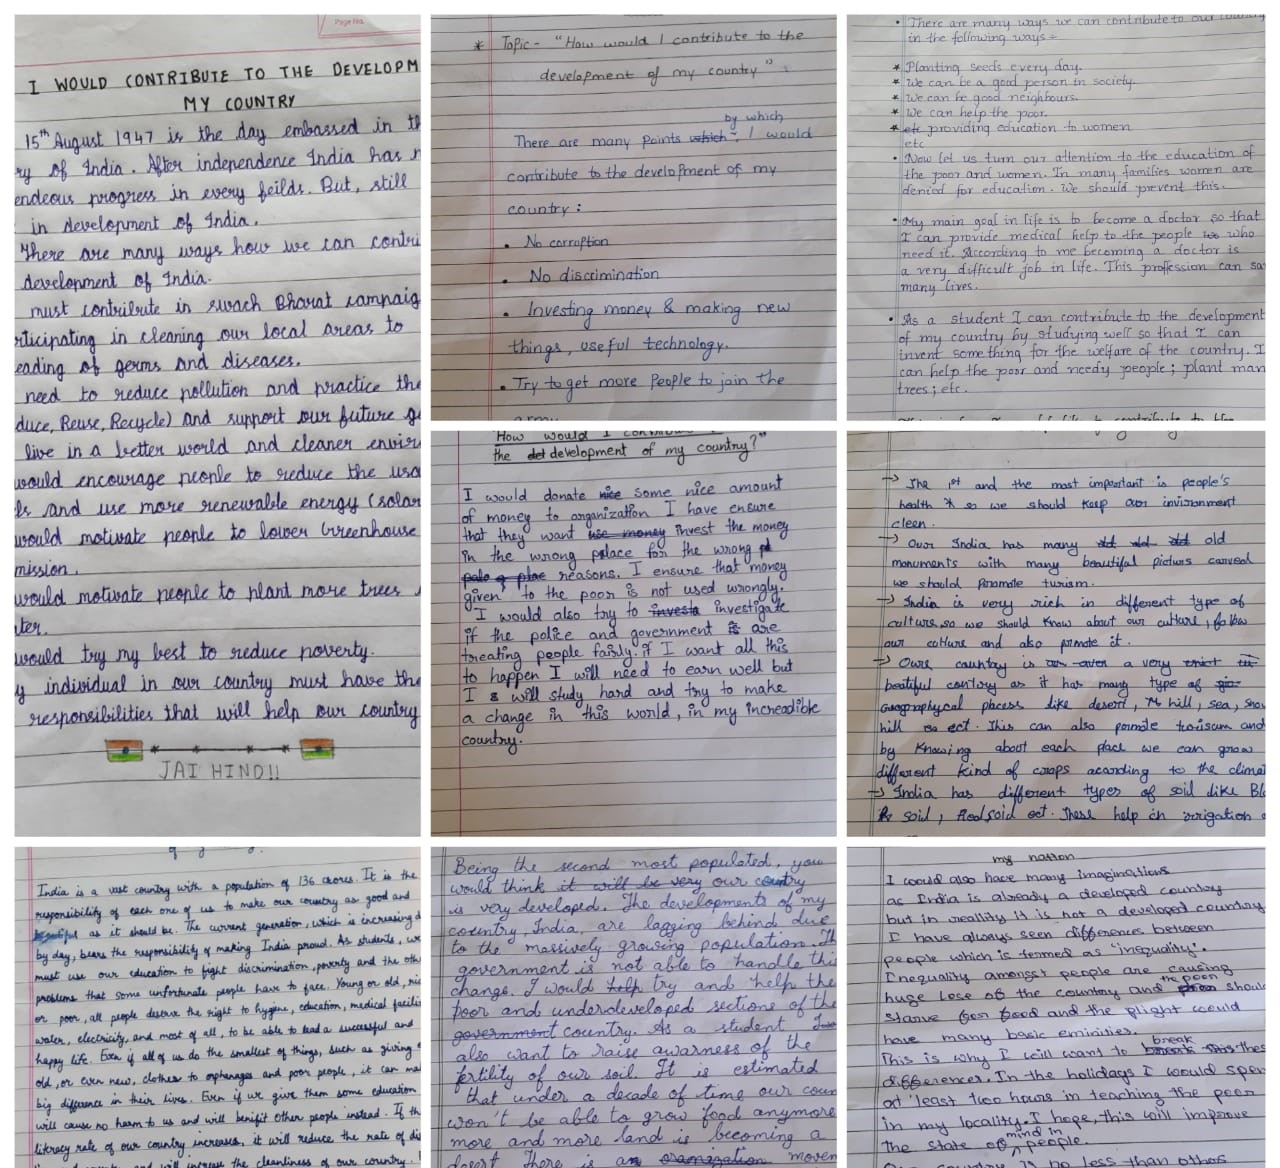 Page No.
I WOULD CONTRIBUTE TO THE DEVELOPM
MY COUNTRY
15th August 1947 is the day embassed in th
ry of India. After independence India has m
endeous progress in every feilds. But, still
in development of India.
There are many ways how we can contri
development of India.
must contribute in swach Bharat campaig
rticipating in cleaning our local areas to
eading of germs and diseases.
need to reduce pollution and practice the
duce, Reuse, Recycle) and support our future ge
live in a better world and cleaner envir
would encourage people to reduce the usa
ls and use more renewable energy (solar
would motivate people to lower Greenhouse
mission.
would motivate people to plant more trees
ter.
would try my best to reduce poverty.
y individual in our country must have the
responsibilities that will help our country
JAI HIND!!
* Topic - "How would I contribute to the
development of my country"
by which
There are many points which : I would
contribute to the development of my
country :
• No corruption
• No discrimination
• Investing money & making new
things, useful technology.
• Try to get more People to join the
army
• There are many ways we can contribute to our country
in the following ways :-
* Planting seeds every day.
* We can be a good person in society.
* We can be good neighbours.
* We can help the poor.
* etc providing education to women
etc
• Now let us turn our attention to the education of
the poor and women. In many families women are
denied for education. We should prevent this.
• My main goal in life is to become a doctor so that
I can provide medical help to the people who
need it. According to me becoming a doctor is
a very difficult job in life. This proffession can sa
many lives.
• As a student I can contribute to the development
of my country by studying well so that I can
invent something for the welfare of the country. I
can help the poor and needy people ; plant man
trees ; etc.
How would I
the det development of my country?"
I would donate nice some nice amount
of money to organization I have ensure
that they want use money invest the money
in the wrong place for the wrong
reasons. I ensure that money
given to the poor is not used wrongly.
I would also try to investa investigate
if the police and government is are
treating people fairly. if I want all this
to happen I will need to earn well but
I will study hard and try to make
a change in this world, in my increadible
country.
→ The 1st and the most important is people's
health so we should keep our invironment
cleen.
→ Our India has many old old old old
monuments with many beautiful picturs carved
we should Promote turism.
→ India is very rich in different type of
culture, so we should know about our culture, follow
our culture and also promote it.
→ Ours country is a very
beatiful contory as it has many type of
Geographycal places like desert, hill, sea, snow
hill ect. This can also pomote tourisum and
by Knowing about each place we can grow
different kind of crops acording to the climat
→ India has different types of soil like Bl
soil, Red soid ect. These help in irrigation
India is a vast country with a population of 136 crores. It is the
responsibility of each one of us to make our country as good and
beautiful as it should be. The current generation, which is increasing d
by day, bears the responsibility of making India proud. As students, we
must use our education to fight discrimination, poverty and the oth
problems that some unfortunate people have to face. Young or old, ric
or poor, all people deserve the right to hygiene, education, medical facilit
water, electricity, and most of all, to be able to lead a successful and
happy life. Even if all of us do the smallest of things, such as giving
old, or even new, clothes to orphanages and poor people, it can ma
big difference in their lives. Even if we give them some education
will cause no harm to us and will benifit other people instead. If th
literacy rate of our country increases, it will reduce the rate of di
and will increase the cleanliness of our country.
Being the second most populated, you
would think it will be very our country
is very developed. The developments of my
country, India, are lagging behind due
to the massively growing population. Th
government is not able to handle this
change. I would help try and help the
poor and underdeveloped sections of the
government country. As a student I
also want to raise awarness of the
fertility of our soil. It is estimated
that under a decade of time our coun
won't be able to grow food anymore
more and more land is becoming a
desert There is an organization movem
my nation
I would also have many imaginations
as India is already a developed country
but in reallity it is not a developed country
I have always seen differences between
people which is termed as 'inequality'.
Inequality amongst people are causing
huge lose of the country and the poor shoul
starve for food and the plight would
have many basic eminities.
This is why I will want to break thes
differences. In the holidays I would spen
at 'least two hours in teaching the poor
in my locality. I hope, this will improve
the state of mind in people.
be less than othes